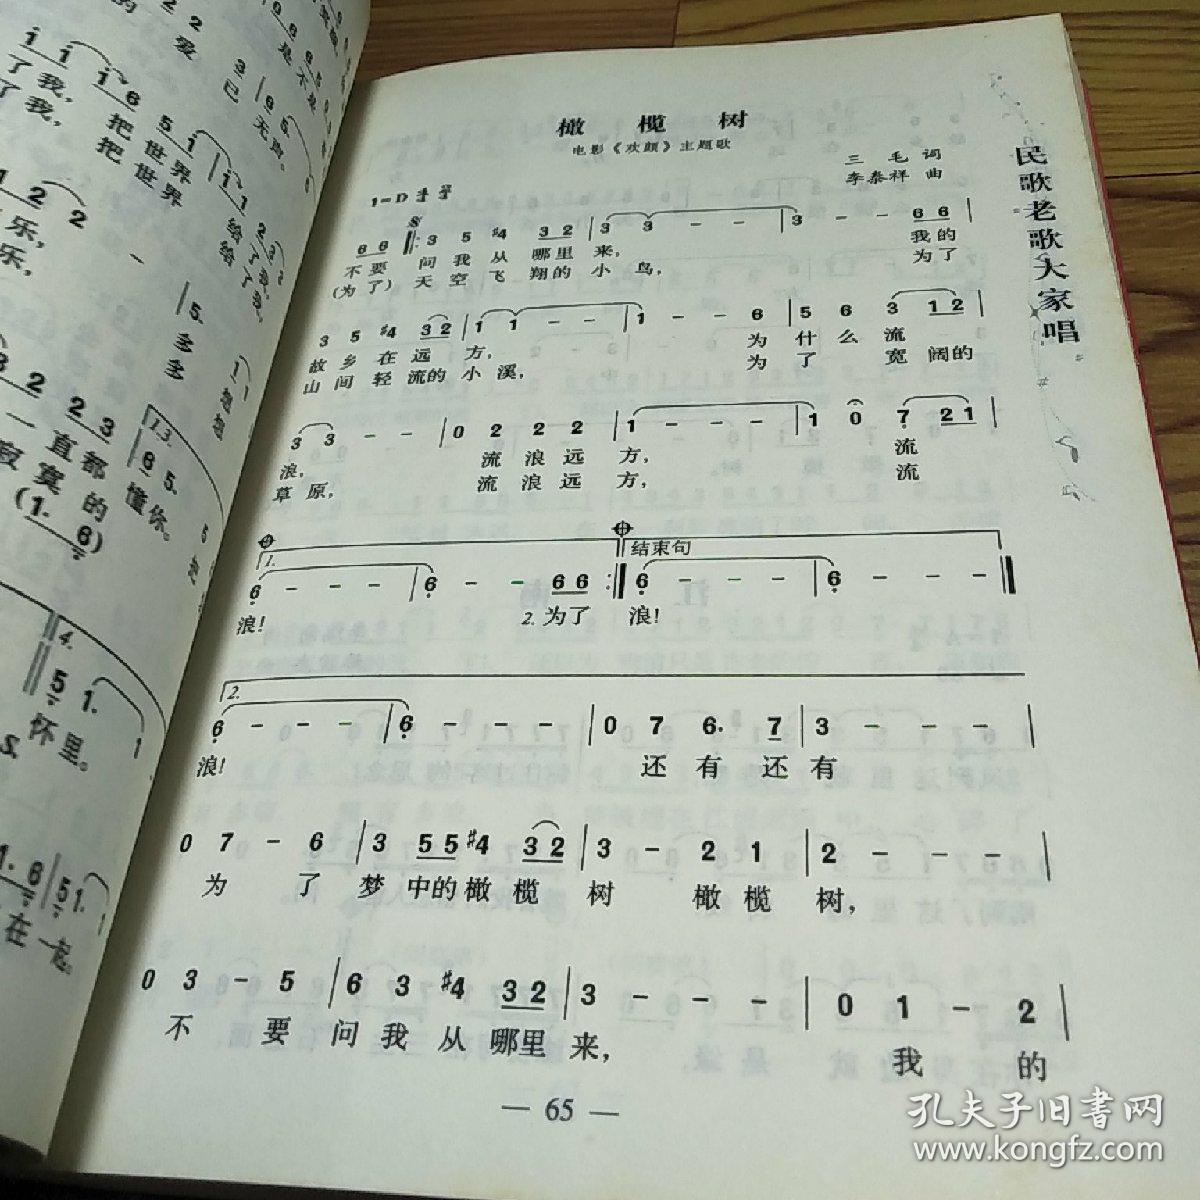 橄榄树
电影《欢颜》主题歌
三毛 词
李泰祥 曲
1=D 4/4
6 6 ‖: 3 5 #4 3 2 | 3 3 - - | 3 - - 6 6 |
不要 问我从 哪里 来, 我的
(为了) 天空飞 翔的 小鸟, 为了
3 5 #4 3 2 | 1 1 - - | 1 - - 6 | 5 6 3 1 2 |
故乡在远方, 为什么流
山间轻流的小溪, 为了宽阔的
3 3 - - | 0 2 2 2 | 1 - - - | 1 0 7 2 1 |
浪, 流浪远方, 流
草原, 流浪远方, 流
1. 结束句
6 - - - | 6 - - 6 6 :‖ 6 - - - | 6 - - - ‖
浪! 2. 为了 浪!
2.
6 - - - | 6 - - - | 0 7 6. 7 | 3 - - - |
浪! 还有还有
0 7 - 6 | 3 5 5 #4 3 2 | 3 - 2 1 | 2 - - - |
为了梦中的橄榄树 橄榄树,
0 3 - 5 | 6 3 #4 3 2 | 3 - - - | 0 1 - 2 |
不要问我从哪里来, 我的
— 65 —
民歌老歌大家唱
了我, 把世界给了我,
了我, 把世界给了我,
怀里。
在一起。
孔夫子旧书网
www.kongfz.com